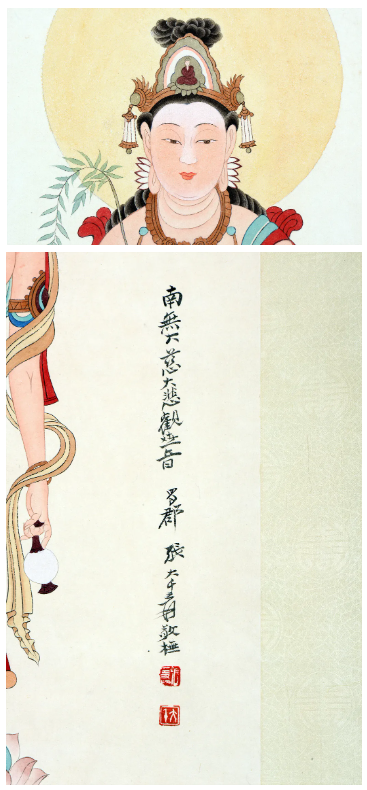 南無大慈大悲觀世音 蜀郡 張大千爰敬橅